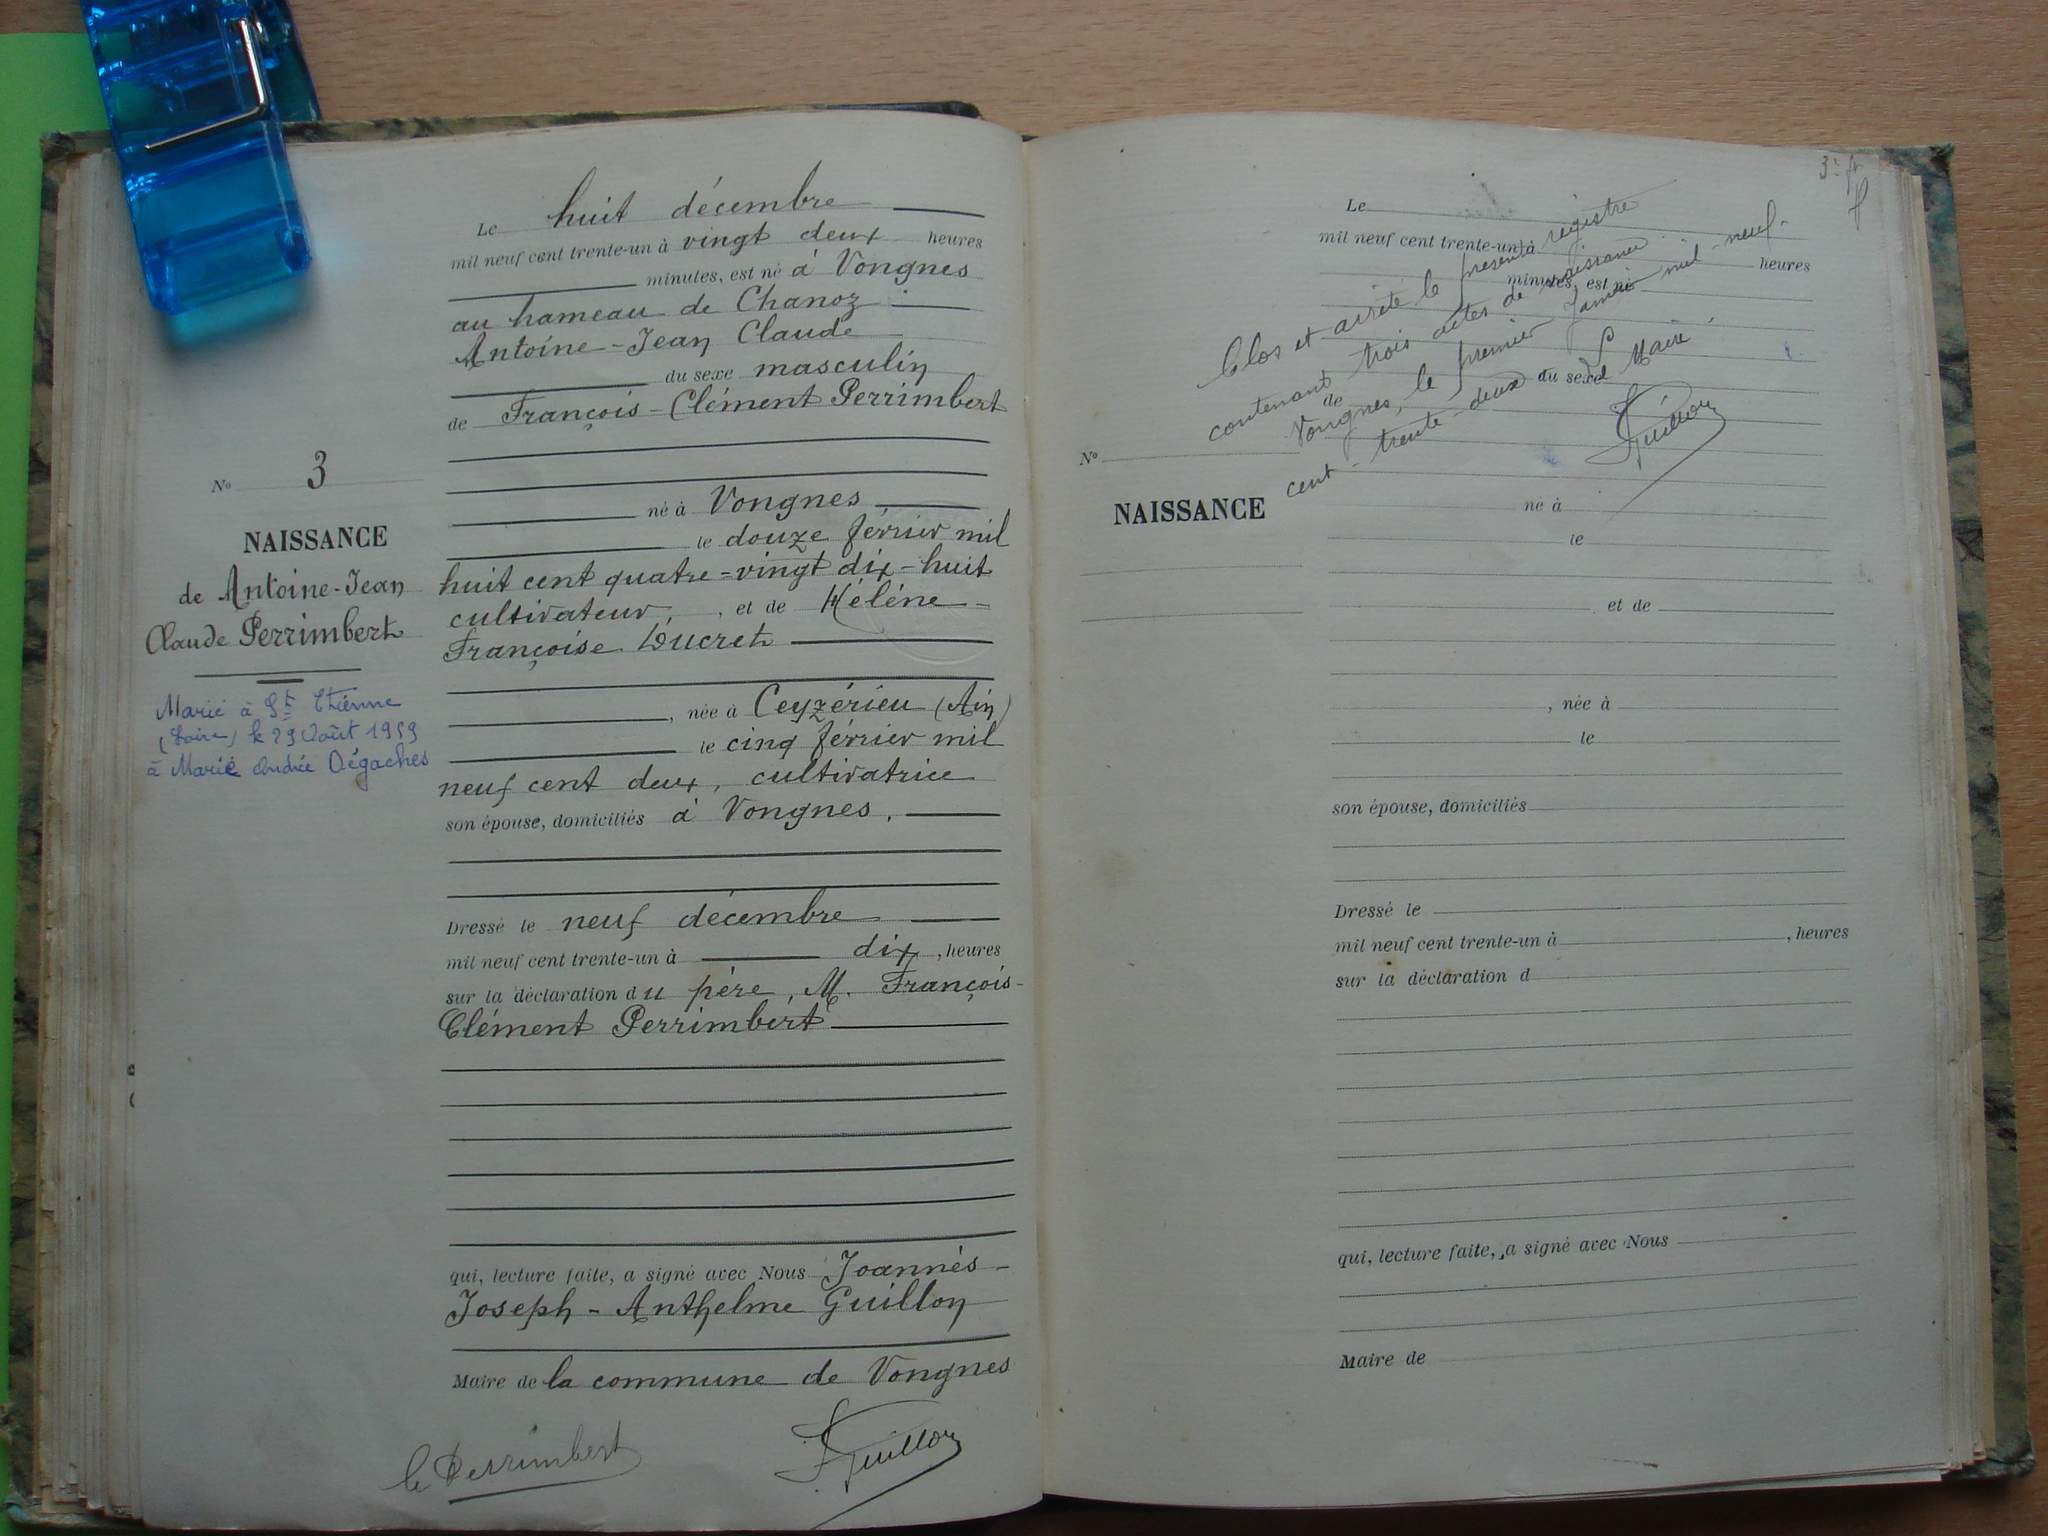 Le huit décembre
mil neuf cent trente-un à vingt deux heures
minutes, est né à Vongnes
au hameau de Chanoz
Antoine-Jean Claude
du sexe masculin
de François-Clément Perrimbert
né à Vongnes
le douze février mil
huit cent quatre=vingt dix-huit
cultivateur, et de Hélène-
Françoise Ducret
, née à Ceyzérieu (Ain)
le cinq février mil
neuf cent deux, cultivatrice
son épouse, domiciliés à Vongnes.
Dressé le neuf décembre
mil neuf cent trente-un à dix, heures
sur la déclaration du père, M. François-
Clément Perrimbert
qui, lecture faite, a signé avec Nous Joannès-
Joseph-Anthelme Guillon
Maire de la commune de Vongnes
Perrimbert
Guillon
No 3
NAISSANCE
de Antoine-Jean
Claude Perrimbert
Marié à St Etienne
(Loire) le 29 Août 1959
à Marie Andrée Dégaches
Le
mil neuf cent trente-un à
heures
minutes, est né
Clos et arrêté le présent registre
contenant trois actes de naissance
Vongnes, le premier Janvier mil-neuf-
cent-trente-deux
Le Maire
Guillon
du sexe
de
No
NAISSANCE
né à
le
et de
, née à
le
son épouse, domiciliés
Dressé le
mil neuf cent trente-un à , heures
sur la déclaration d
qui, lecture faite, a signé avec Nous
Maire de